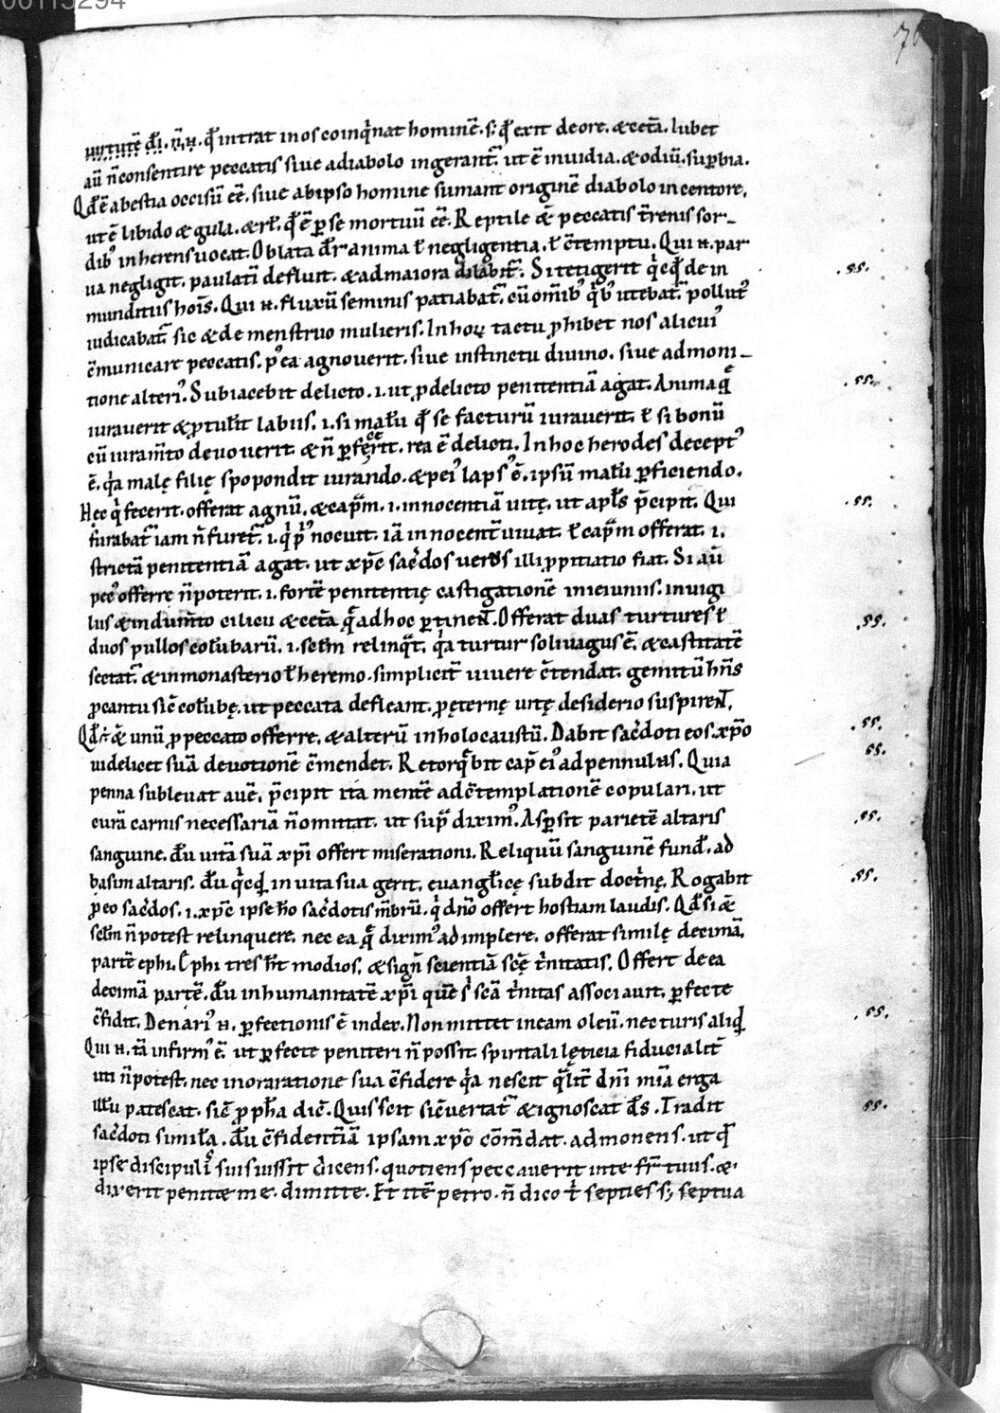 00115294
70
uirtutē dī. ñ. n̄. qđ intrat in os coinq̇nat hominē. s; qđ exit de ore. &cet̄a. Iubet
aū ñ consentire peccatis siue a diabolo ingerant᷑. ut ē inuidia. & odiū. suꝑbia.
Qđ ē a bestia occisū eē. siue ab ipso homine sumant originē diabolo incentore.
ut ē libido & gula. & rł. qđ ē ꝑ se mortuū eē. Reptile & peccatis t̄renis sor-
dibꝰ inherens uocat. Oblata dr̄ anima ł negligentia. ł ꝯ̄temptu. Qui n̄. par
ua negligit. paulati defluit. & ad maiora dilabit᷑. Si tetigerit q̇cqđ de in .ss.
munditiis hoīs. Qui n̄. fluxū seminis patiabat᷑. cū om̄ibꝰ q̇bꝰ utebat᷑. pollutꝰ
iudicabat᷑. sic & de menstruo mulieris. In hoꝝ tactu ꝓhibet nos alicuiꝰ
c̄municare peccatis. p̄ꝰea agnouerit. siue instinctu diuino. siue admoni-
tione alteriꝰ. Subiacebit delicto. .i. ut ꝓ delicto penitentiā agat. Anima q̄ .ss.
iurauerit & ꝓtulit labiis. .i. si malū qđ se facturū iurauerit. ł si bonū
cū iuram̄to deuouerit & ñ ꝑfecerit. rea ē delicti. In hoc herodes deceptꝰ
ē. q̇a male filię spopondit iurando. & peiꝰ lapsꝰ ē. ipsū malū ꝑficiendo.
Hec q̇ fecerit. offerat agnū. & cap̄m. .i. innocentiā uitę. ut apłs p̄cipit. Qui .ss.
furabat᷑ iam ñ furet᷑. .i. q̇ ṗꝰ nocuit. iā innocent᷑ uiuat. ł cap̄m offerat. .i.
strictā penitentiā agat. ut xp̄c sac̄dos uerus illi ꝓpitiatio fiat. Si aū
pecꝰ offerre ñ poterit. .i. fortē penitentię castigationē in ieiuniis. in uigi
liis & indum̄to cilicii & cet̄a q̄ ad hoc ꝑtinent. Offerat duas turtures ł .ss.
duos pullos colūbarū. .i. sełm relinq̄t. q̇a turtur soliuagus ē. & castitatē
sectat᷑. & in monasterio ł heremo. simplicit᷑ uiuere c̄tendat. gemitū hñs
ꝓ cantu sic̄ colūbę. ut peccata defleant. ꝓ ęternę uitę desiderio suspirent.
Qđ ÷ & unū ꝓ peccato offerre. & alterū in holocaustū. Dabit sac̄doti eos. xp̄o .ss.
uidelicet suā deuotionē c̄mendet. Retorq̄bit cap̄ eiꝰ ad pennulas. Quia .ss.
penna subleuat auē. p̄cipit ita mentē ad c̄templationē copulari. ut
curā carnis necessariā ñ omittat. ut sup̄ diximꝰ. Asꝑsit parietē altaris .ss.
sanguine. dū uitā suā xp̄i offert miserationi. Reliquū sanguinē fund̄. ad
basim altaris. dū q̇cqđ in uita sua gerit. euanglicę subdit doct̄nę. Rogabit .ss.
ꝓ eo sac̄dos. .i. xp̄c ipse ħo sac̄dotis m̄brū. q̇ dño offert hostiam laudis. Qđ si &
sełm ñ potest relinquere. nec ea q̄ diximꝰ adimplere. offerat similę decimā
partē ephi. Ephi tres ħt modios. & sign̄ scientiā scę t̄nitatis. Offert de ea
decimā partē. dū in humanitatē xp̄i quē s̄ scā t̄nitas associauit. ꝑfecte
c̄fidit. Denariꝰ n̄. ꝑfectionis ē index. Non mittet in eam oleū. nec turis aliq̄d .ss.
Qui n̄. tā infirmꝰ ē. ut ꝑfecte peniteri ñ possit. spiritali lęticia fiducialit᷑
uti ñ potest. nec in oraratione sua c̄fidere q̇a nescit q̄lit᷑ dñi mīa erga
illū patescat. sic̄ ꝓpħa dic̄. Quis scit si c̄uertat᷑ & ignoscat dš. Tradit .ss.
sac̄doti similā. dū c̄fidentiā ipsam xp̄o cōm̄dat. admonens. ut qđ
ipse discipulis suis iussit dicens. quotiens peccauerit in te fr̄ tuus. &
dixerit penitæ me. dimitte. Et itē petro. ñ dico t̄ septies s; septua